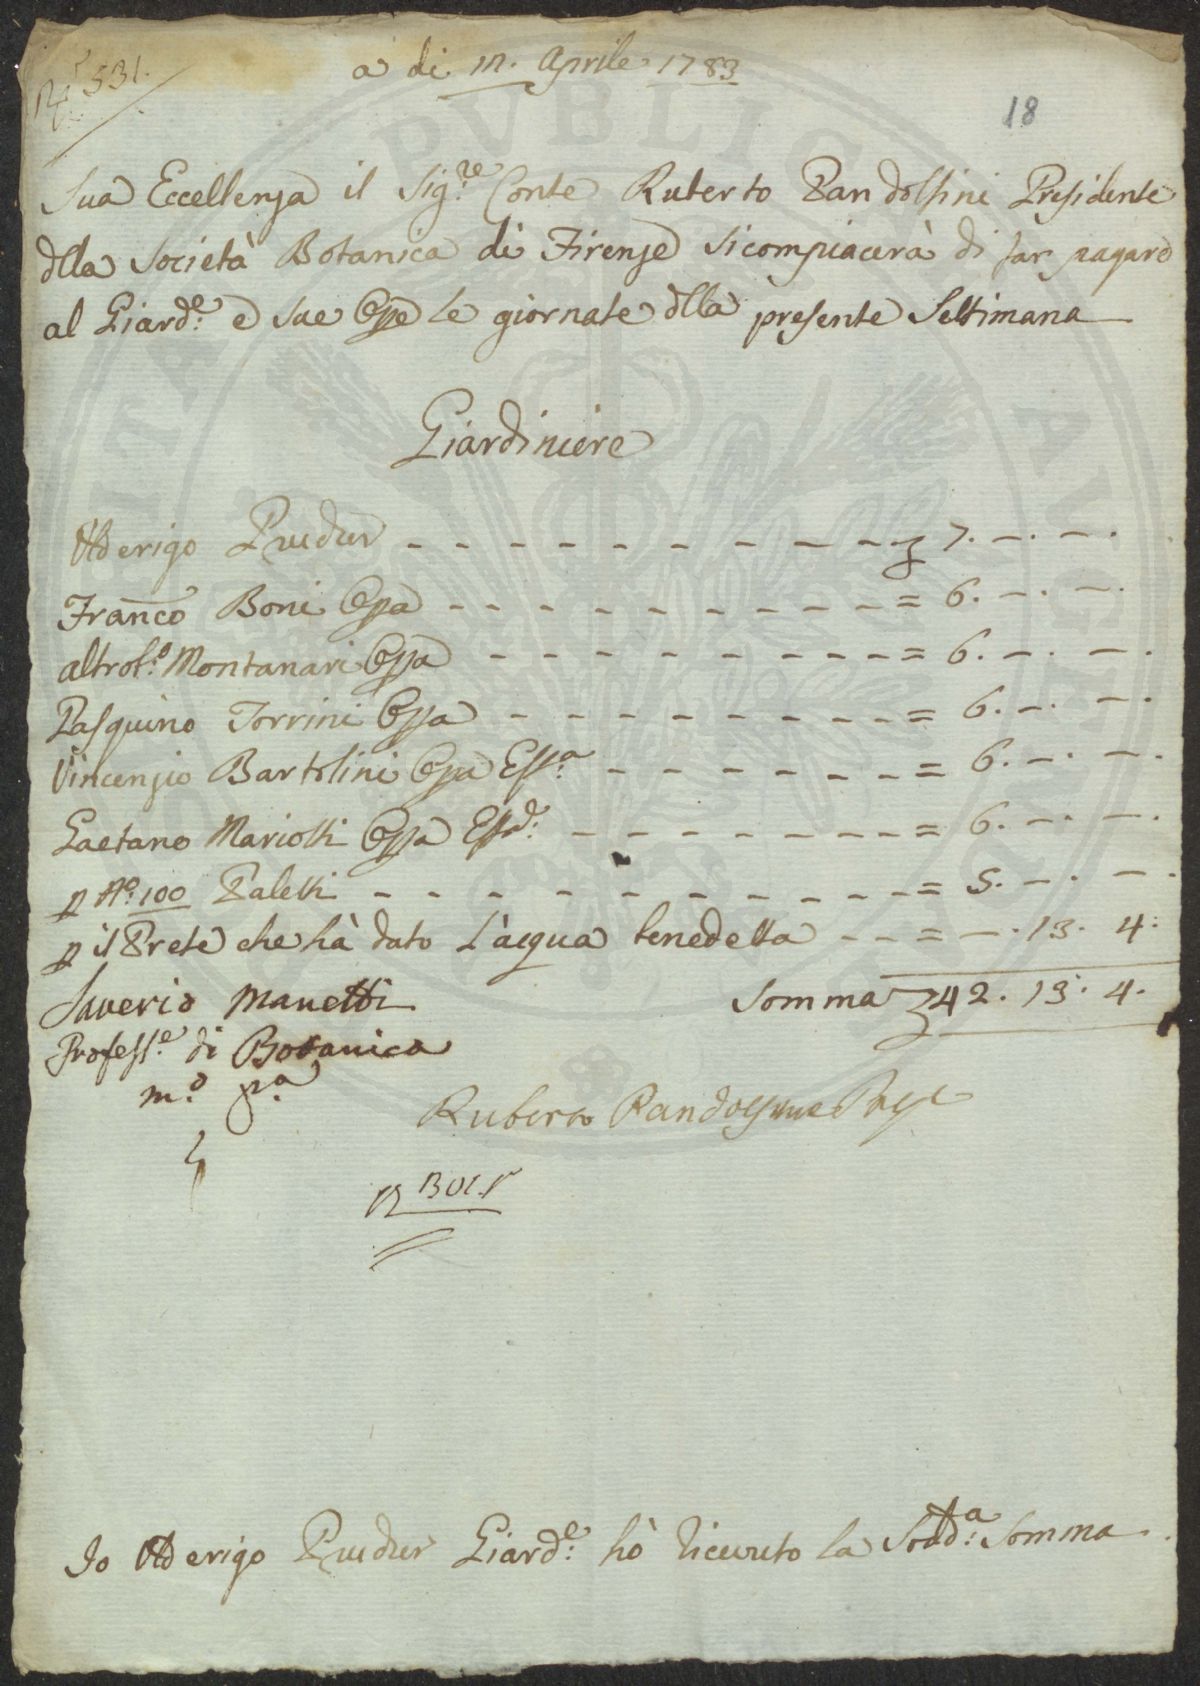 N.° 531.
a di 12. Aprile 1783
18
Sua Eccellenza il Sig.re Conte Ruberto Pandolfini Presidente
dlla Società Botanica di Firenze si compiacerà di far pagare
al Giard.e e sue Opre le giornate dlla presente Settimana
Giardiniere
Ulderigo Prucher £ 7. —. —.
Franco Boni Opa = 6. —. —.
altro f.o Montanari Opa = 6. —. —.
Pasquino Torrini Opa = 6. —. —.
Vincenzio Bartolini Opa = 6. —. —.
Gaetano Mariotti Opa = 6. —. —.
p N.o 100 Paletti = 5. —. —.
p il Prete che hà dato L'acqua benedetta = —. 13. 4.
Saverio Manetti
Somma £ 42. 13. 4.
Profess.e di Botanica
m.o p.a
Ruberto Pandolfini Pres.e
Io Ulderigo Prucher Giard.e hò ricevuto la Sudd.a Somma